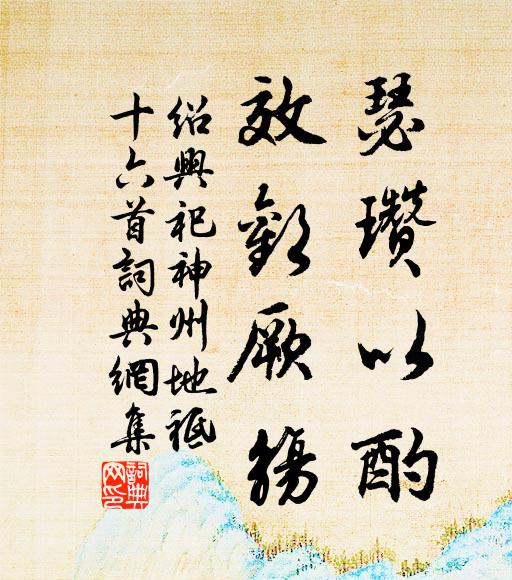 瑟瓚以酌
效歡厥觴
紹興祀神州地祇
十六首詞典網集
詞典
网印